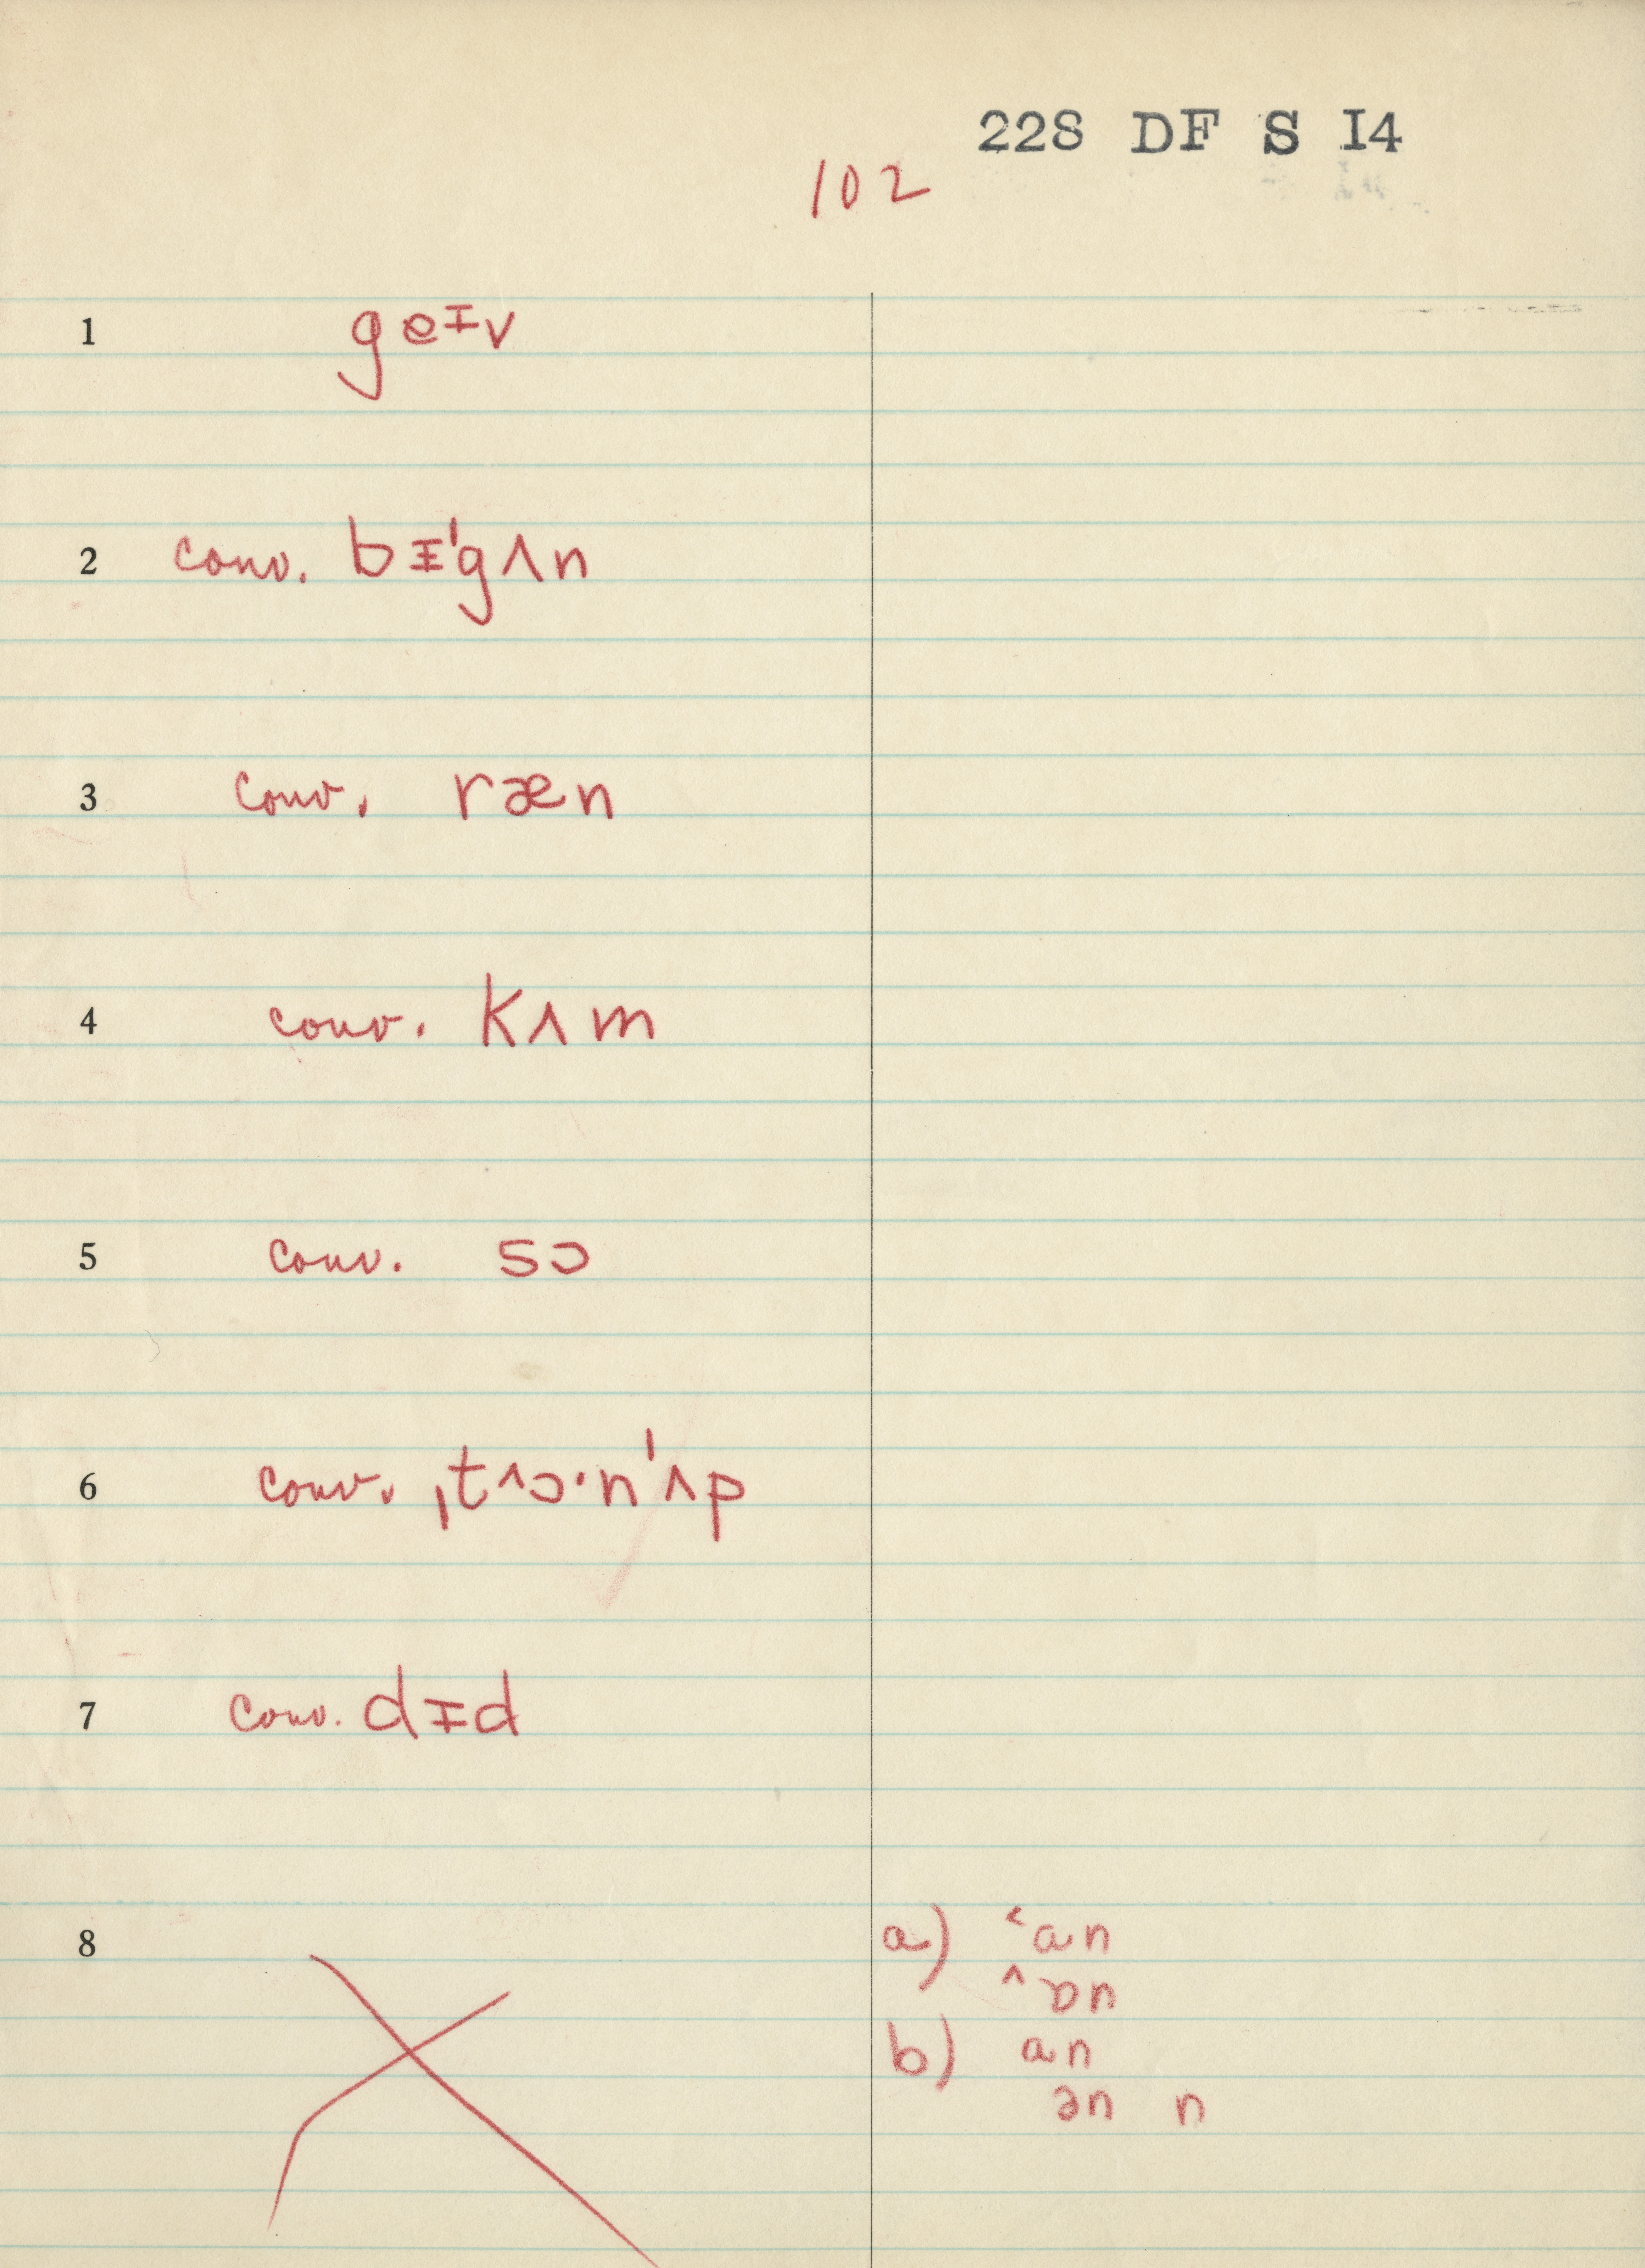 228 DF S I4
102
1 geɪv
2 conv. bɪ'gʌn
3 conv. ræn
4 conv. kʌm
5 conv. sɔ
6 conv. ˌt^ɔ·n'ʌp
7 conv. dɪd
8 a) ˂an
^ɒn
b) an
ən n